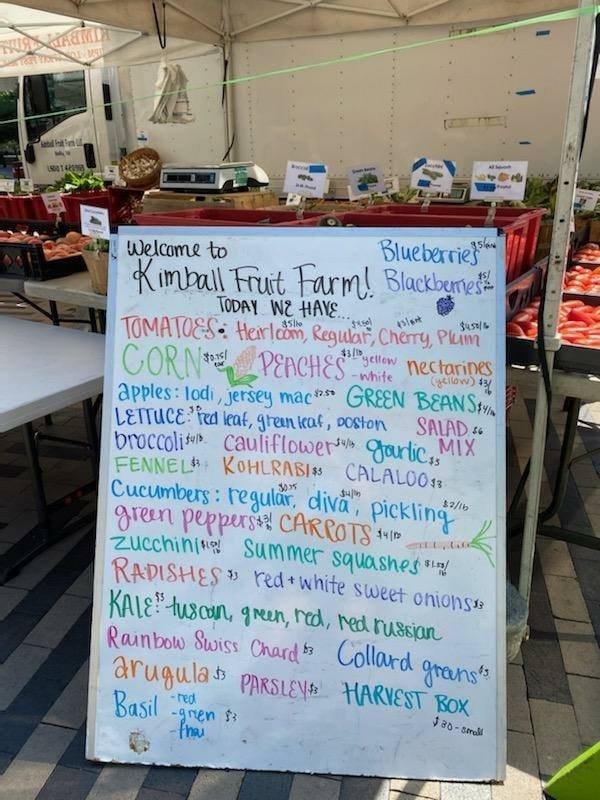 KIMBALL FRUIT
Kimball Fruit Farm LLC
Broccoli
Green Beans
Zucchini
All Squash
Welcome to
Kimball Fruit Farm!
TODAY WE HAVE...
Blueberries $5/
Blackberries $5/
TOMATOES: Heirloom, $5/lb Regular, Cherry, Plum $4.50/lb
CORN $0.75/ear PEACHES $3/lb - yellow - white nectarines (yellow) $3/lb
apples: lodi, jersey mac $2.50 GREEN BEANS $4/lb
LETTUCE: $3 red leaf, green leaf, boston SALAD MIX $6
broccoli $4/lb cauliflower $4/lb garlic $3
FENNEL $3 KOHLRABI $3 CALALOO $3
Cucumbers: regular, $0.75 diva, $4/lb pickling $2/lb
green peppers $3/lb CARROTS $4/lb
zucchini $1.50/lb Summer squashes $1.50/lb
RADISHES $3 red + white sweet onions $3
KALE: $3 tuscan, green, red, red russian
Rainbow Swiss Chard $3 Collard greens $3
arugula $3 PARSLEY $3 HARVEST BOX
Basil - red - green - thai $3 $30 - small